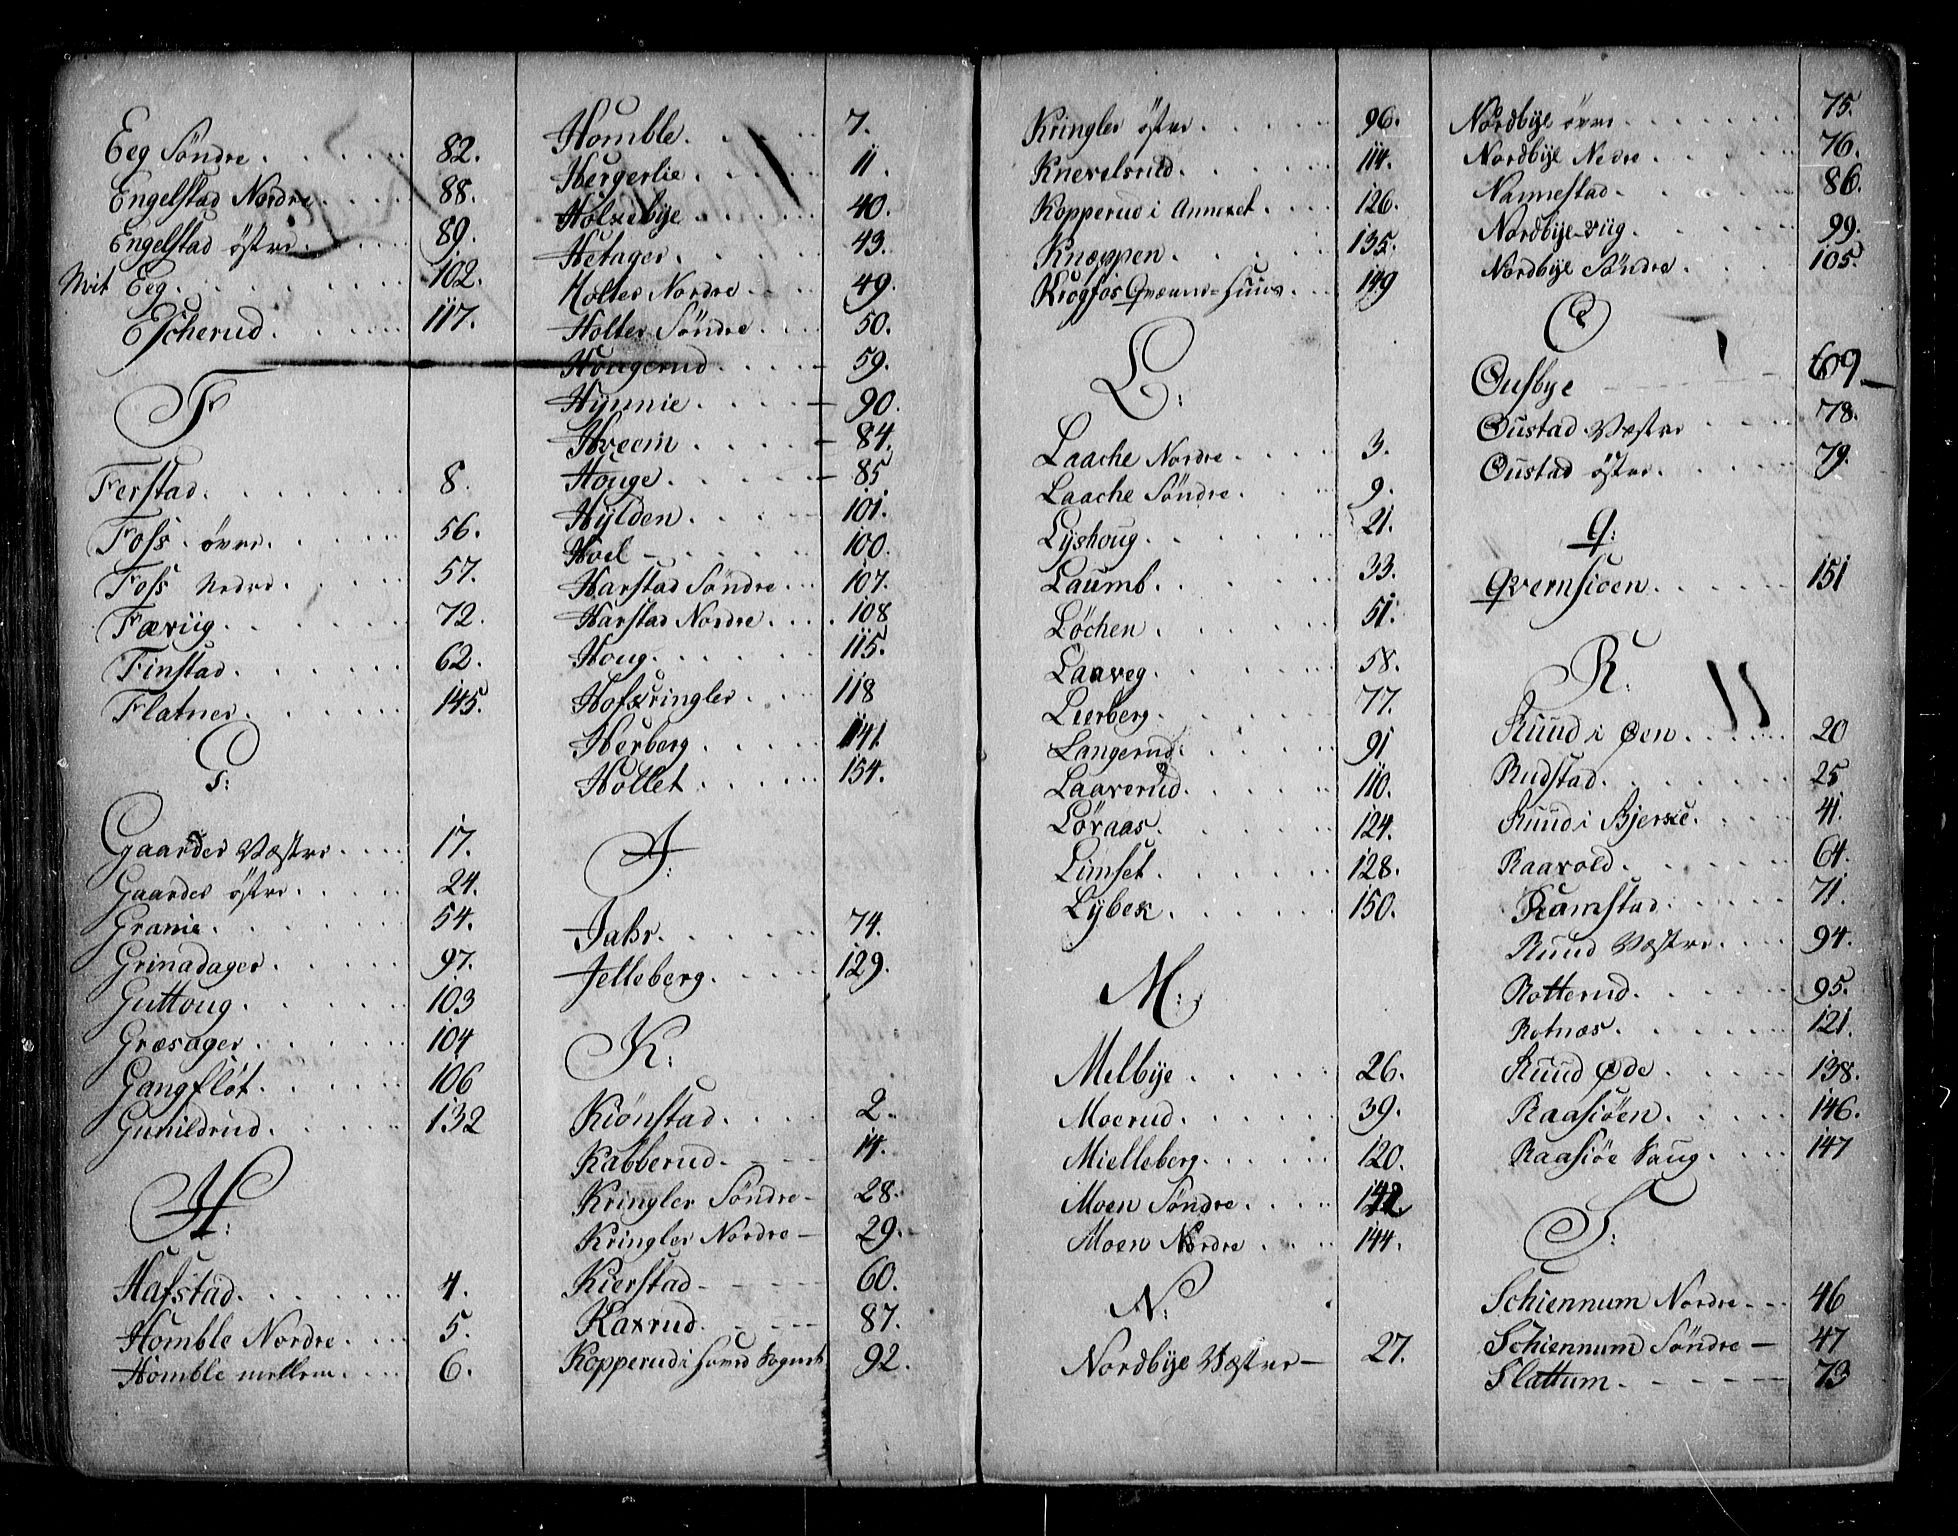 Eeg Söndre . . . . . 82.
Engelstad Nordre . . . . 88.
Engelstad östre . . . . 89.
Eeg . . . . . . 102.
Escherud . . . . . 117.
F
Ferstad . . . . . . 8.
Foss övre . . . . . 56.
Foss Nedre . . . . . 57.
Færüg . . . . . . 72.
Finstad . . . . . . 62.
Flatner . . . . . . 145.
G:
Gaarder Væstre . . . . 17.
Gaarder östre . . . . 24.
Granie . . . . . . 54.
Grinadager . . . . . 97.
Guttoug . . . . . . 103
Græsager . . . . . 104
Gangfløt . . . . . 106
Gunildrud . . . . . 132
H:
Hafstad . . . . . . 4.
Homble Nordre . . . . 5.
Homble mellem . . . . 6.
Homble . . . . . . 7.
Hergerlie . . . . . 11.
Holxebÿe . . . . . 40.
Hetager . . . . . . 43.
Holter Nordre . . . . 49.
Holter Söndre . . . . 50.
Hougerud . . . . . 59.
Hÿnnie . . . . . . 90.
Hveem . . . . . . 84.
Houge . . . . . . 85
Hÿlden . . . . . . 101.
Hoel . . . . . . 100.
Harstad Söndre . . . 107.
Harstad Nordre . . . . 108
Houg . . . . . . 115.
Hofkringler . . . . 118
Herberg . . . . . . 141.
Hollet . . . . . . 154.
J:
Jahr . . . . . . 74.
Jelleberg . . . . . 129.
K:
Kiönstad . . . . . 2.
Kabberud . . . . . 14.
Kringler Söndre - 28.
Kringler Nordre - 29.
Kierstad - - - - 60.
Kaxrud . - - - - 87.
Kopperud i Hoved Sognet 92.
Kringler östre . . . . . 96.
Knevelsrud . . . . . 114.
Kopperud i Annexet . . . 126.
Knæppen . . . . . 135.
Krogfos Qværne-Huus . . 149
L:
Laache Nordre . . . . 3.
Laache Söndre . . . . 9.
Lÿshoug . . . . . 21.
Laumb . . . . . . 33.
Løchen . . . . . . 51.
Laaveg . . . . . . 58.
Lierberg . . . . . 77.
Langerud . . . . . 91
Laaverud . . . . . 110.
Løvaas . . . . . . 124.
Limset . . . . . . 128.
Lÿbek . . . . . . 150.
M:
Melbÿe . . . . . . 26.
Moerud . . . . . . 39.
Mielleberg . . . . . 120.
Moen Söndre . . . . 142.
Moen Nordre . . . . 144.
N:
Nordbÿe Væstre - 27.
Nordbÿe övre . . . . . 75.
Nordbÿe Nedre . . . . 76.
Nannestad . . . . . 86.
Nordbÿe-viig . . . . . 99.
Nordbÿe Söndre . . . . 105.
O
Ousbye - - - - - 69
Oustad Væstre . . . . 78.
Oustad östre . . . . 79.
Q:
Qvernsioen . . . . . 151
R:
Ruud i Øen . . . . . 20
Rudstad . . . . . . 25
Ruud i Bjerke . . . . 41.
Raavold . . . . . . 64.
Ramstad . . . . . 71.
Ruud Væstre . . . . 94.
Rotterud . . . . . 95.
Rotnæs . . . . . . 121.
Ruud Øde . . . . . 138.
Raasiöen . . . . . 146.
Raasiöe Saug . . . . 147
S:
Schiennum Nordre - - - 46
Schiennum Söndre - 47
Slattum . - - - - - 73